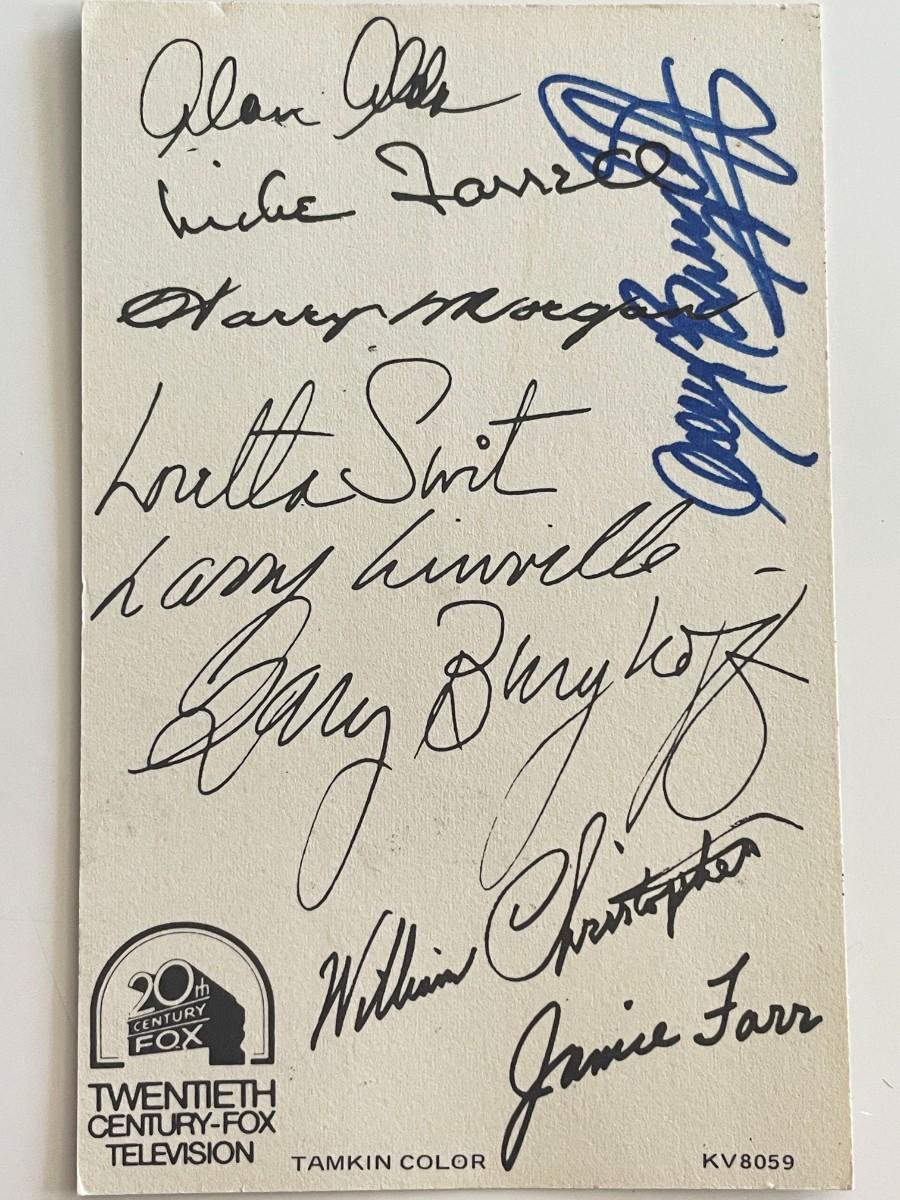 Alan Alda
Mike Farrell
Harry Morgan
Loretta Swit
Larry Linville
Gary Burghoff
William Christopher
Jamie Farr
20th
CENTURY
FOX
TWENTIETH
CENTURY-FOX
TELEVISION
TAMKIN COLOR
KV8059